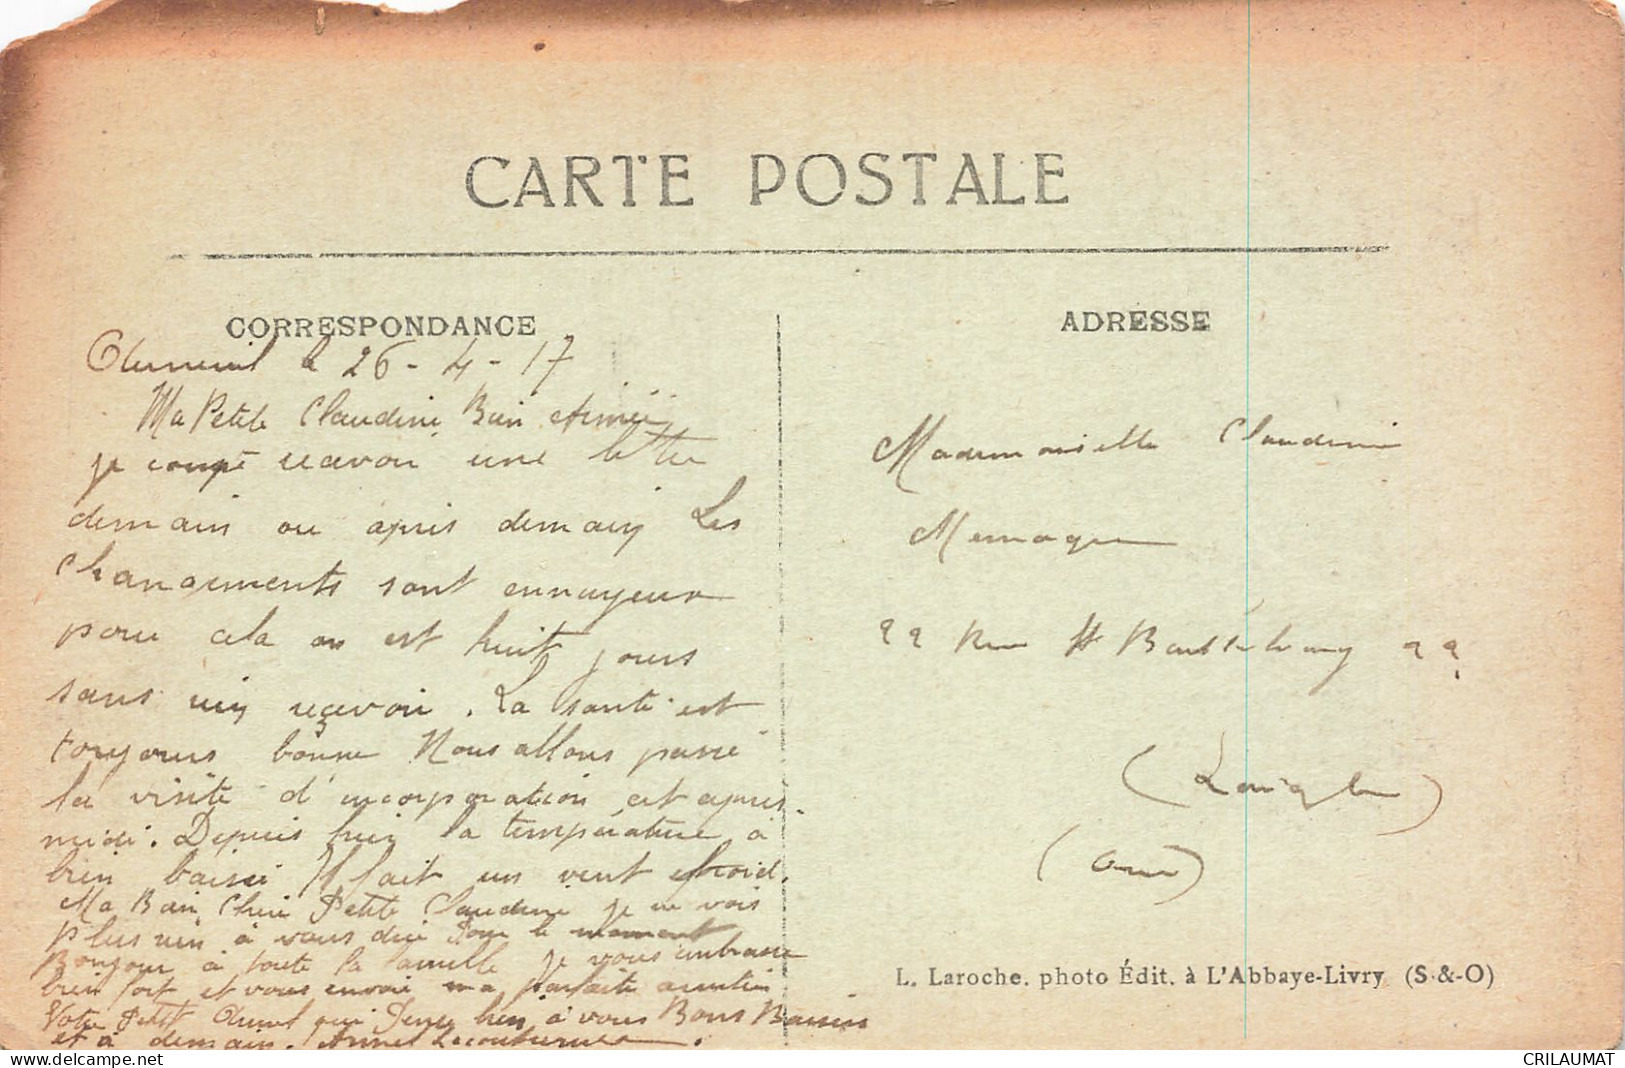 CARTE POSTALE
CORRESPONDANCE
ADRESSE
le 26-4-17
Ma Petite Claudine Bien Aimée
je compte recevoir une lettre
demain ou après demain Les
changements sont ennuyeux
pour cela on est huit jours
sans rien reçevoir. La santé est
toujours bonne Nous allons passé
la visite d'incorporation cet après-
midi. Depuis hier la température a
bien baissé Il fait un vent froid.
Ma Bien Chère Petite Claudine je ne vois
plus rien à vous dire Pour le moment
Bonjour à toute la famille je vous embrasse
bien fort et vous envoie ma parfaite amitié
Votre Petit qui Pense bien à vous Bons Baisers
et à demain.
Mademoiselle Claudine
22 Rue St Barthélemy 22
(Laigle)
(Orne)
L. Laroche, photo Édit. à L'Abbaye-Livry (S-&-O)
CRILAUMAT